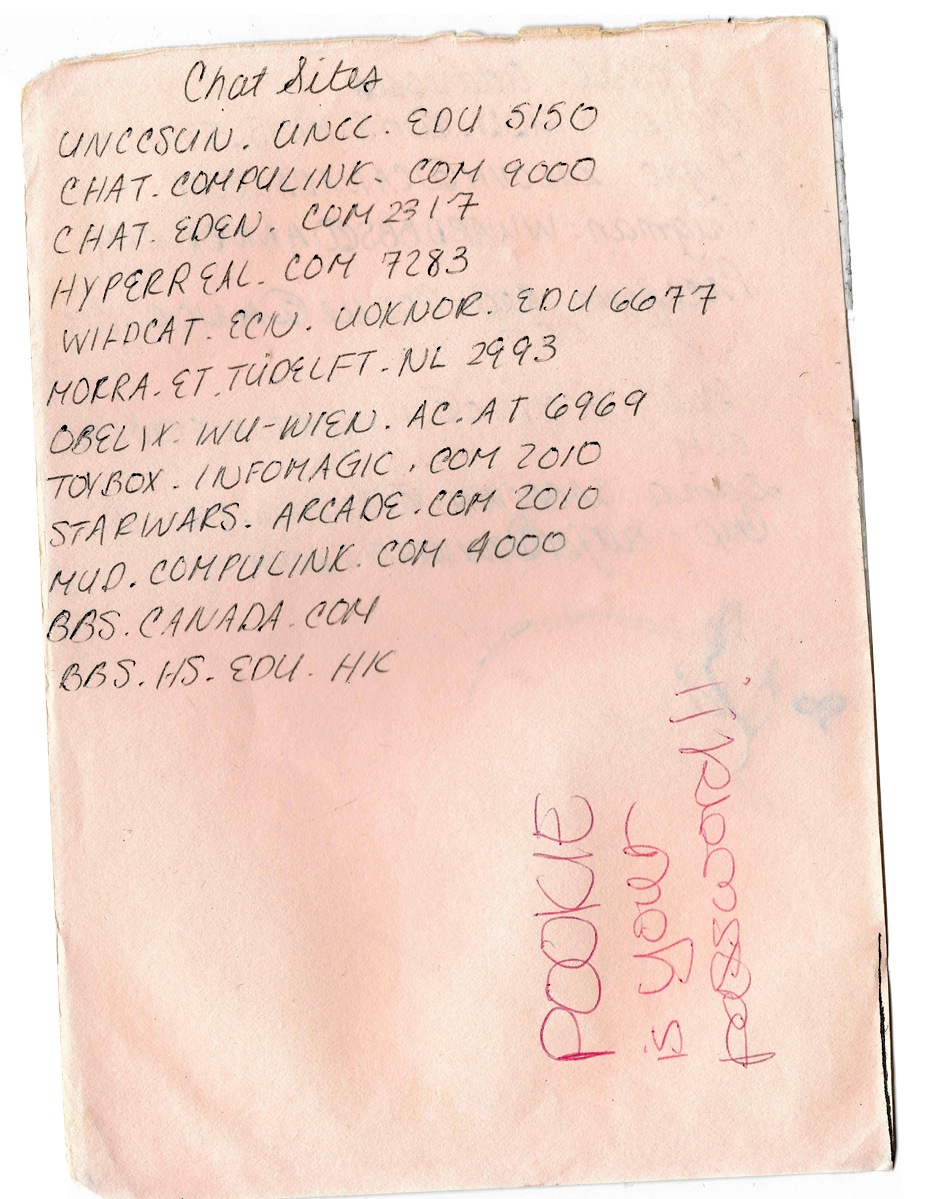 Chat Sites
UNCCSUN. UNCC. EDU 5150
CHAT. COMPULINK. COM 9000
CHAT. EDEN. COM 2317
HYPERREAL. COM 7283
WILDCAT. ECN. UOKNOR. EDU 6677
MORRA. ET. TUDELFT. NL 2993
OBELIX. WU-WIEN. AC. AT 6969
TOYBOX. INFOMAGIC. COM 2010
STARWARS. ARCADE. COM 2010
MUD. COMPULINK. COM 4000
BBS. CANADA. COM
BBS. HS. EDU. HK
POOKIE
is your
password!!